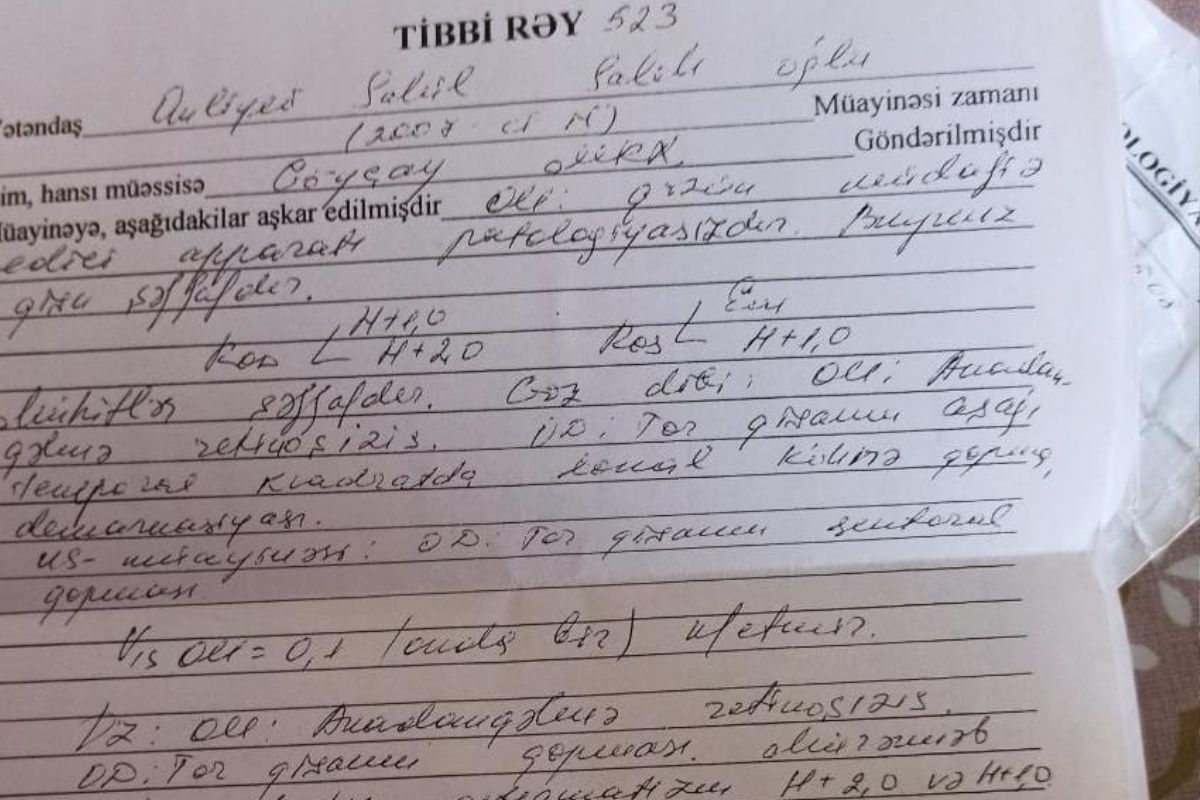 TİBBİ RƏY 523
ətəndaş Sahil Salih oğlu
(2007 Müayinəsi zamanı
im, hansı müəssisə Göyçay MRX Göndərilmişdir
üayinəyə, aşağıdakılar aşkar edilmişdir OU: gözün müdafiə
edici apparatı patologiyasızdır. Buynuz
qişa şəffafdır.
H+1,0 Em
Ros H+2,0 Ros H+1,0
mühitlər şəffafdır. Göz dibi: OU: Anadan-
gəlmə retinoşizis. OD: Tor qişanın aşağı
temporal kvadratda lokal köhnə qopma,
demarkasiyası.
US-müayinəsi: OD: Tor qişanın
qopması
Vis OU = 0,1 (onda bir) n/etmir.
Dz: OU: Anadangəlmə retinoşizis.
OD: Tor qişanın qopması. mürəkkəb
astiqmatizm H+2,0 və H+1,0
OLOGİYA